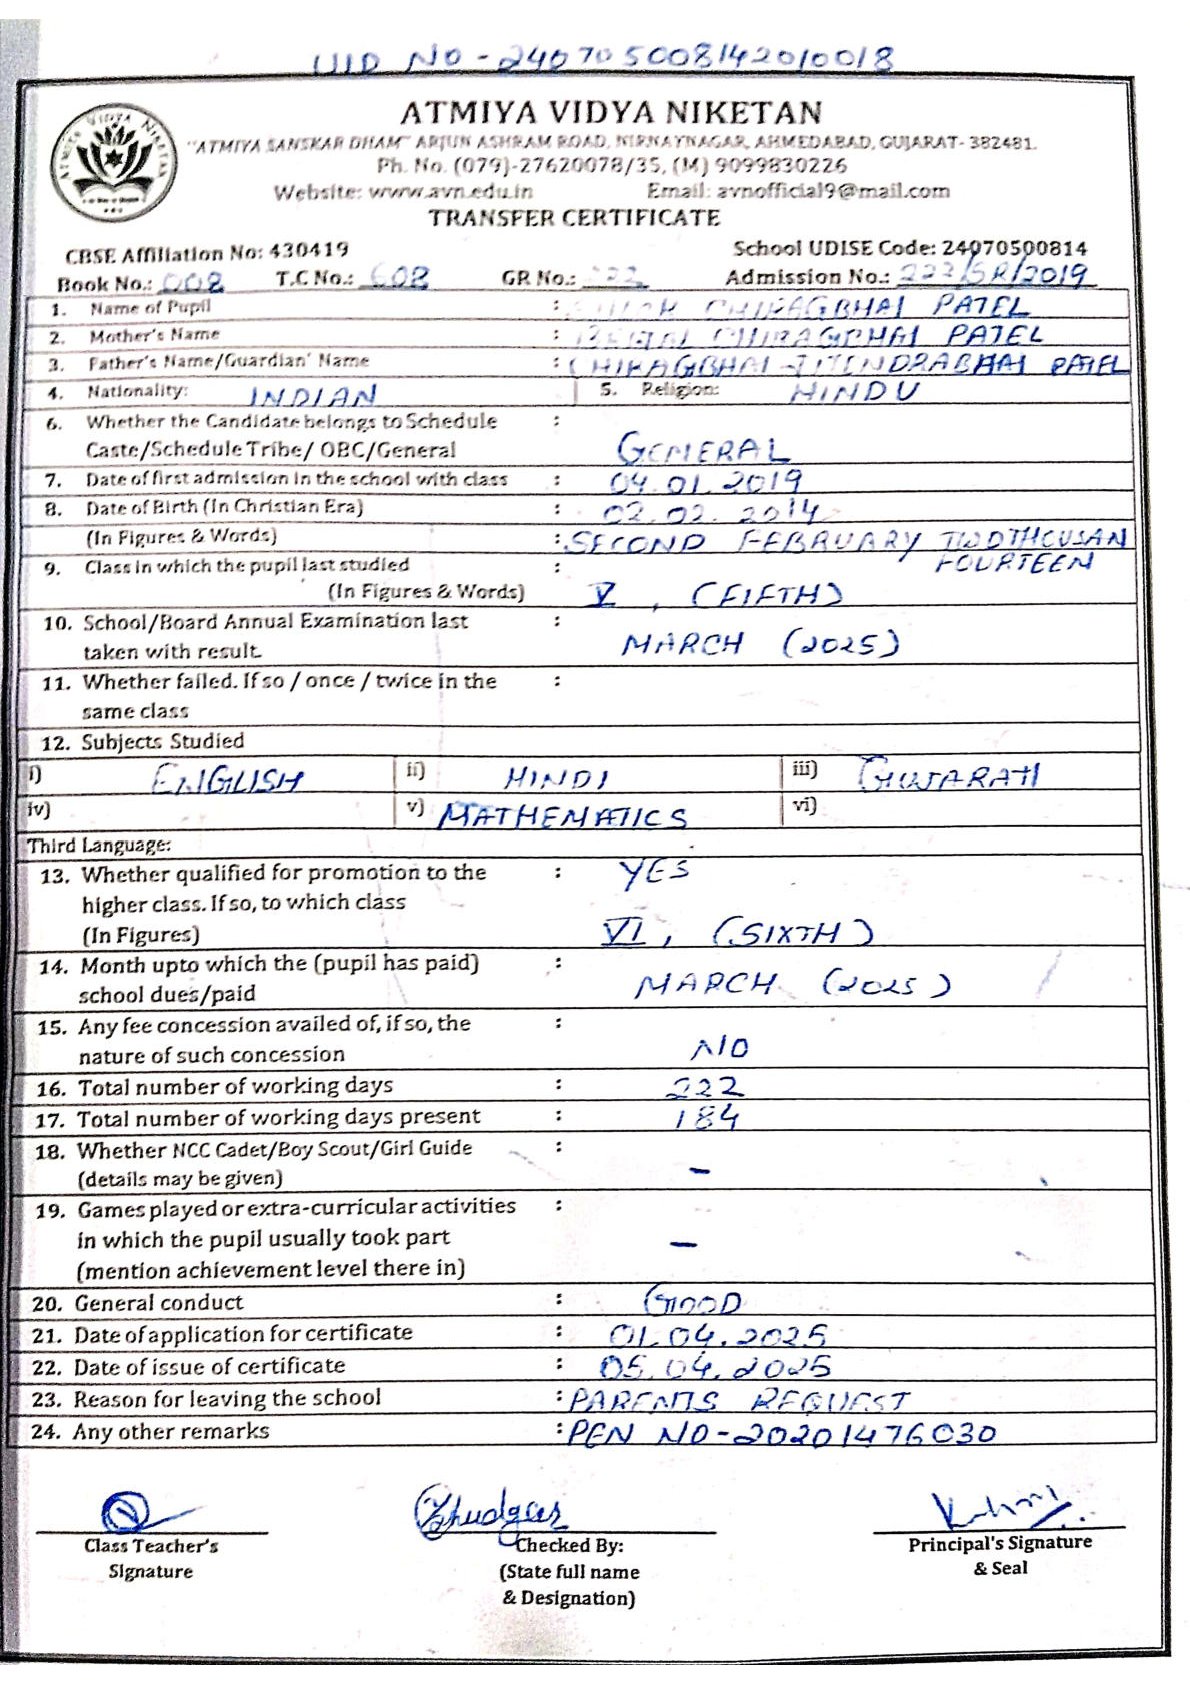 UID NO - 240705008142010018
ATMIYA VIDYA NIKETAN
"ATMIYA SANSKAR DHAM" ARJUN ASHRAM ROAD, NIRNAYNAGAR, AHMEDABAD, GUJARAT- 382481.
Ph. No. (079)-27620078/35, (M) 9099830226
Website: www.avn.edu.in Email: avnofficial9@mail.com
TRANSFER CERTIFICATE
CBSE Affiliation No: 430419 School UDISE Code: 24070500814
Book No.: 008 T.C No.: 608 GR No.: 222 Admission No.: 222/GR/2019
1. Name of Pupil : CHIRAGBHAI PATEL
2. Mother's Name : CHIRAGBHAI PATEL
3. Father's Name/Guardian' Name : CHIRAGBHAI JITENDRABHAI PATEL
4. Nationality: INDIAN 5. Religion: HINDU
6. Whether the Candidate belongs to Schedule :
Caste/Schedule Tribe/ OBC/General GENERAL
7. Date of first admission in the school with class : 04.01.2019
8. Date of Birth (In Christian Era) : 02.02.2014
(In Figures & Words) : SECOND FEBRUARY TWOTHOUSAN
9. Class in which the pupil last studied : FOURTEEN
(In Figures & Words) V, (FIFTH)
10. School/Board Annual Examination last :
taken with result. MARCH (2025)
11. Whether failed. If so / once / twice in the :
same class
12. Subjects Studied
i) ENGLISH ii) HINDI iii) GUJARATI
iv) v) MATHEMATICS vi)
Third Language:
13. Whether qualified for promotion to the : YES
higher class. If so, to which class
(In Figures) VI, (SIXTH)
14. Month upto which the (pupil has paid) :
school dues/paid MARCH (2025)
15. Any fee concession availed of, if so, the :
nature of such concession NO
16. Total number of working days : 222
17. Total number of working days present : 184
18. Whether NCC Cadet/Boy Scout/Girl Guide :
(details may be given) –
19. Games played or extra-curricular activities :
in which the pupil usually took part –
(mention achievement level there in)
20. General conduct : GOOD
21. Date of application for certificate : 01.04.2025
22. Date of issue of certificate : 05.04.2025
23. Reason for leaving the school : PARENTS REQUEST
24. Any other remarks : PEN NO-20201476030
Class Teacher's Checked By: Principal's Signature
Signature (State full name & Seal
& Designation)